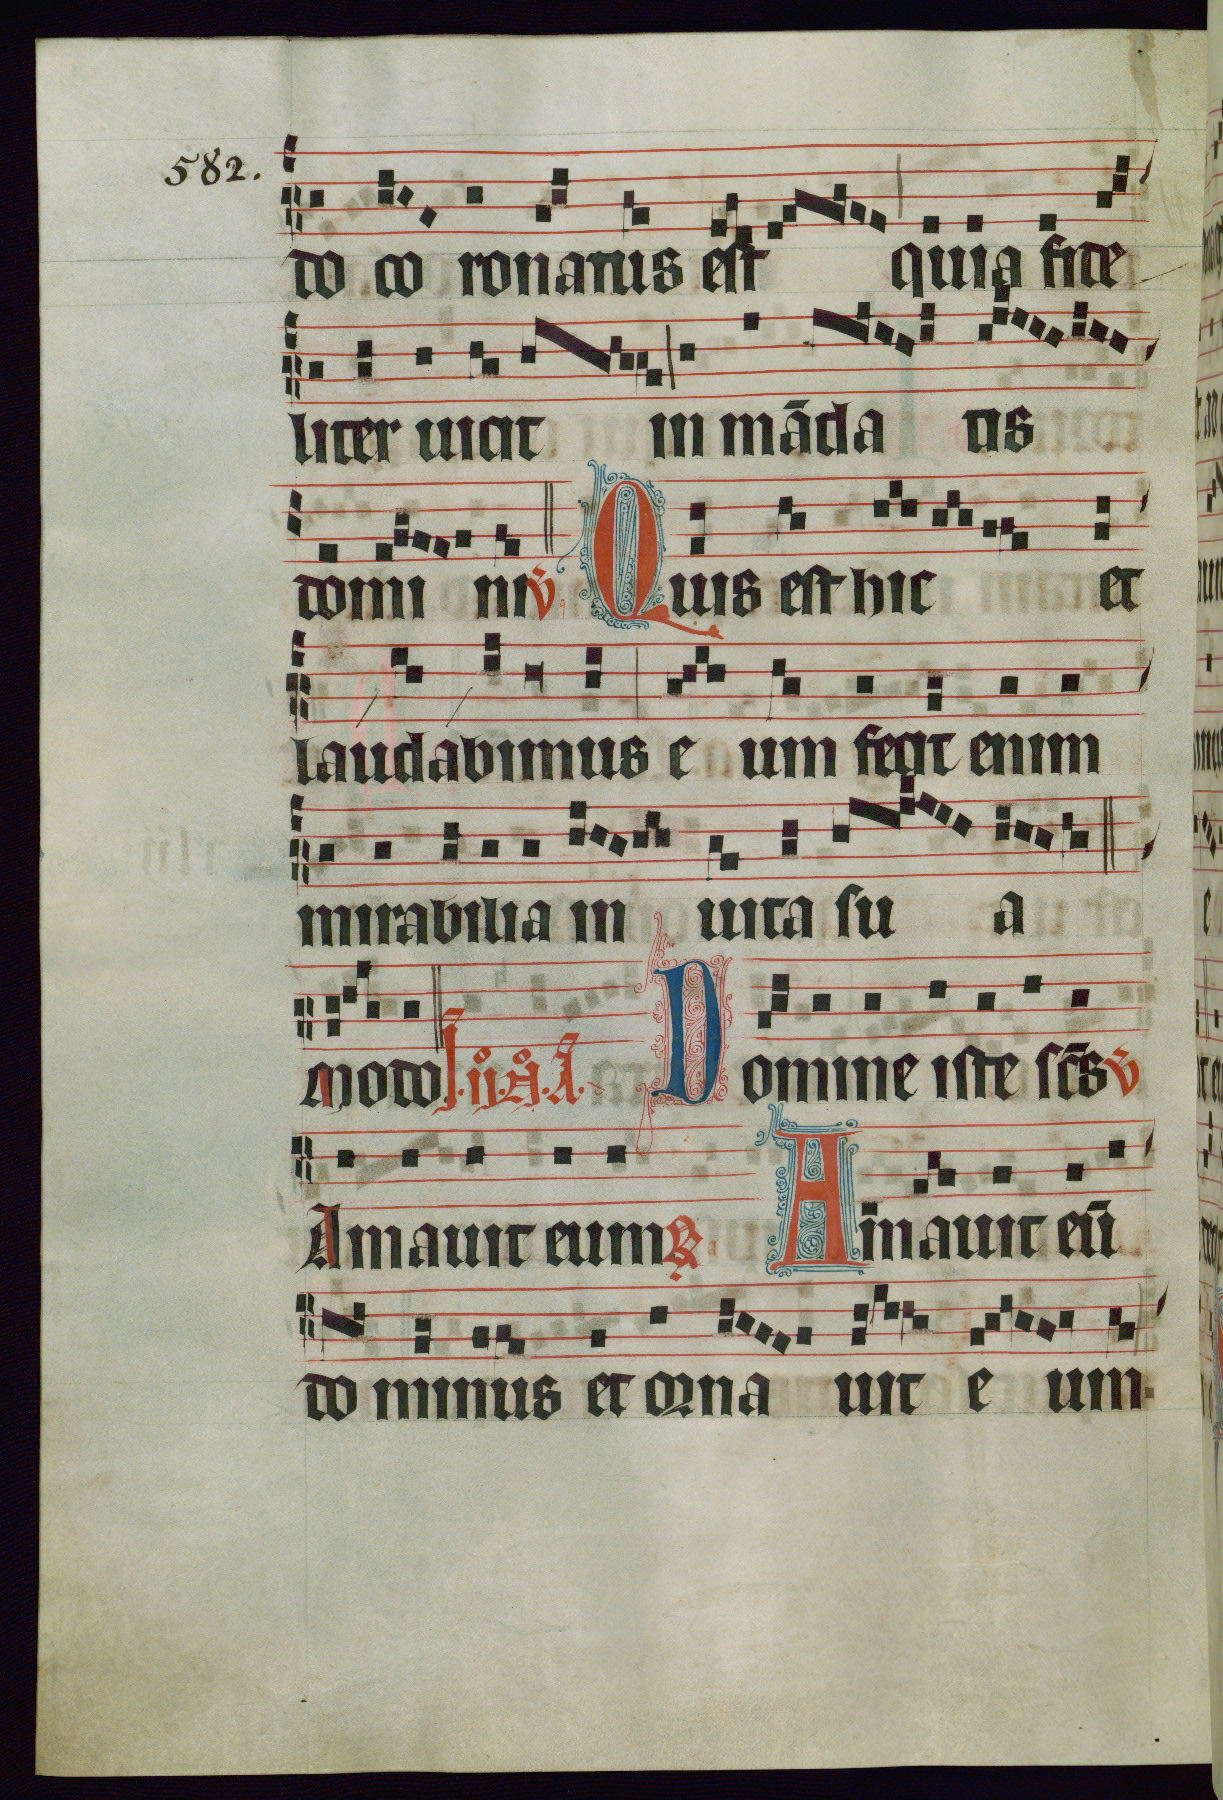 582.
do co ronatus est quia fide
liter uicit in māda tis
domi ni ℣ Quis est hic et
laudabimus e um fecit enim
mirabilia in uita su a
Modo Domine iste sc̄s ℣
Amauit eum ℟ Amauit eū
do minus et orna uit e um.